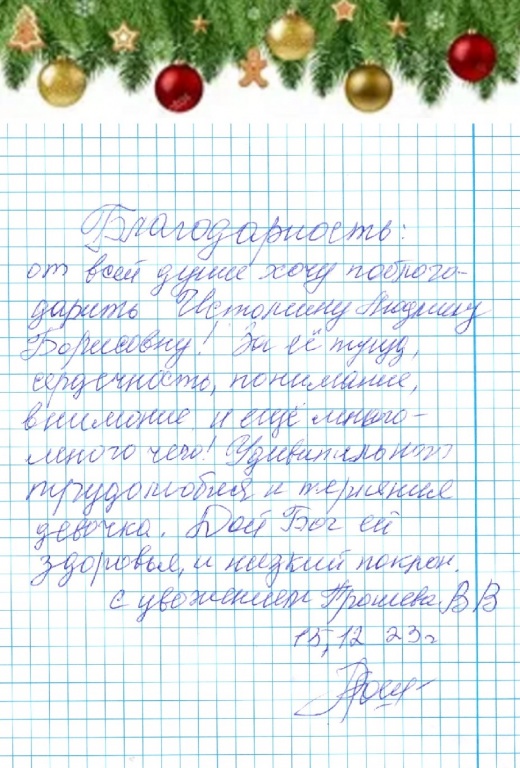 Благодарность:
от всей души хочу поблаго-
дарить Истомину Людмилу
Борисовну! За её труд,
сердечность, понимание,
внимание и ещё много-
много чего! Удивительного
трудолюбия и терпения
девочка. Дай Бог ей
здоровья, и низкий поклон.
с уважением Прошева В В
15,12 23г